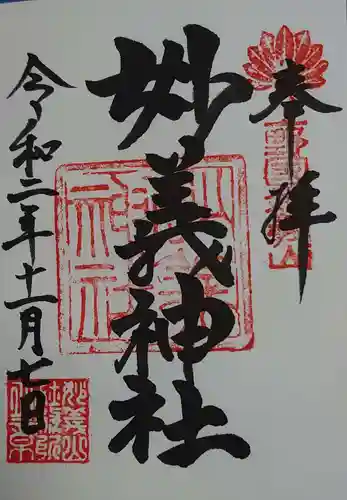 奉拝
妙義神社
令和二年十一月七日